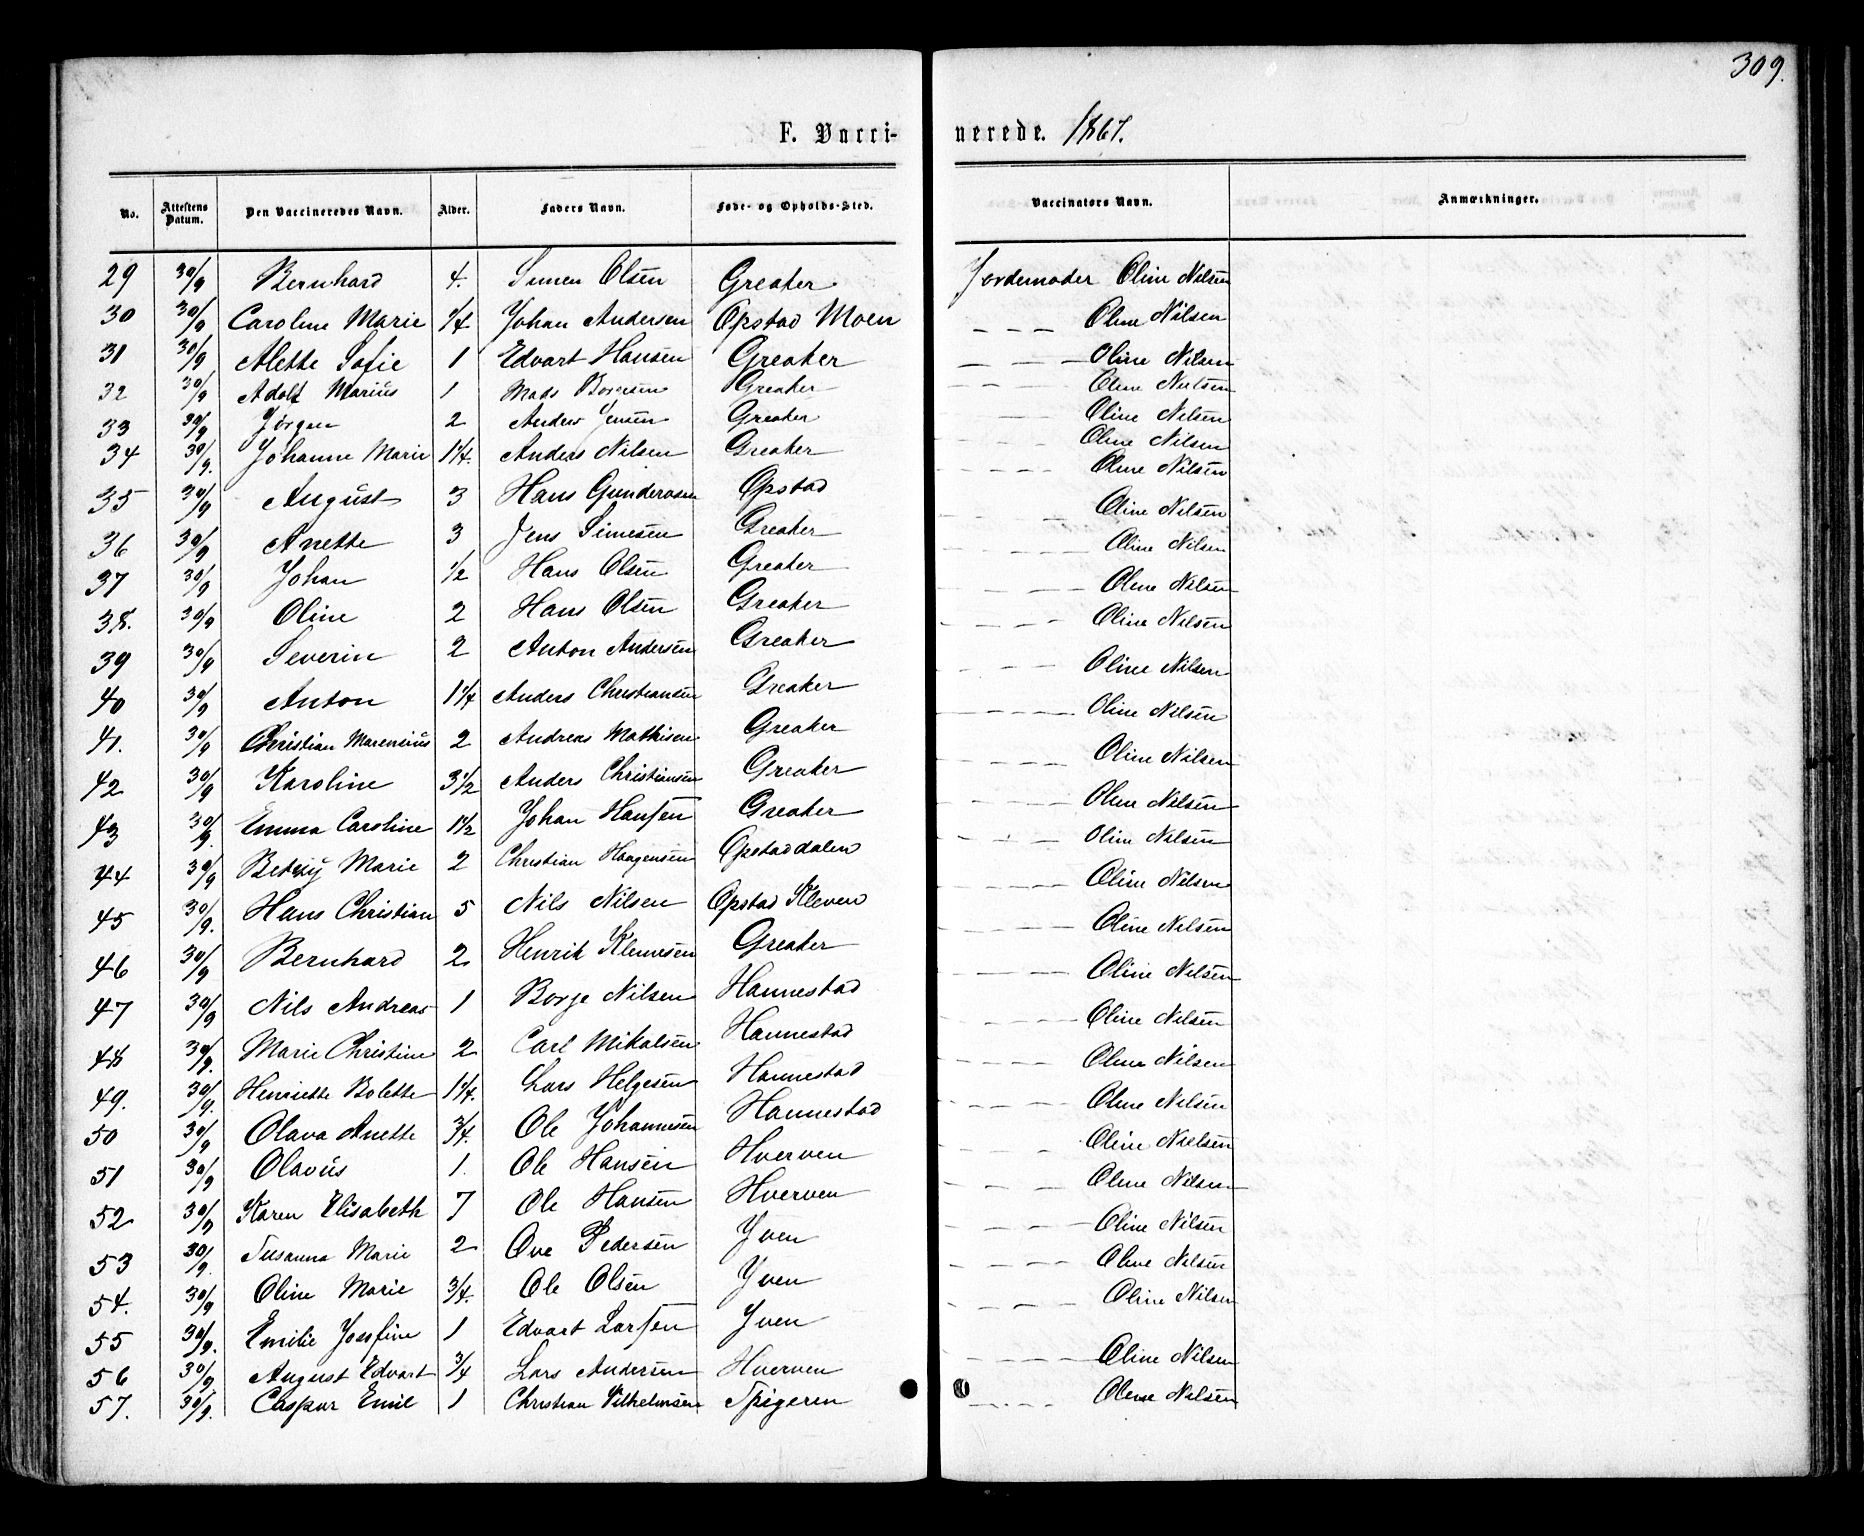 309.
F. Vacci- nerede. 1867.
No. Attestens Datum. Den Vaccineredes Navn. Alder. Faders Navn. Føde- og Opholds-Sted. Vaccinators Navn. Anmærkninger.
29 30/9 Bernhard 4. Simen Olsen Greaker Jordemoder Oline Nilsen
30 30/9 Caroline Marie 1/4 Johan Andersen Opstad Moen – – – Oline Nilsen
31 30/9 Alette Sofie 1 Edvart Hansen Greaker – – – Oline Nilsen
32 30/9 Adolf Marius 1 Mads Borgesen Greaker – – – Oline Nielsen
33 30/9 Jørgen 2 Anders Jensen Greaker – – – Oline Nilsen
34 30/9 Johanne Marie 1 1/4. Anders Nilsen Greaker – – – Oline Nilsen
– – – Oline Nilsen
35 30/9 August 3 Hans Gundersen Opstad – – – Oline Nilsen
36 30/9 Anette 3 Jens Simesen Greaker – – – Oline Nilsen
37 30/9 Johan 1/2 Hans Olsen Greaker – – – Oline Nilsen
38. 30/9 Oline 2 Hans Olsen Greaker – – – Oline Nilsen
39 30/9 Severin 2 Anton Andersen Greaker – – – Oline Nilsen
40 30/9 Anton 1 1/4 Anders Christiansen Greaker – – – Oline Nilsen
41. 30/9 Christian Marensius 2 Andreas Mathisen Greaker – – – Oline Nilsen
42 30/9 Karoline 3 1/2 Anders Christiansen Greaker – – – Oline Nilsen
43 30/9. Emma Caroline 1 1/2 Johan Hansen Greaker – – – Oline Nilsen
44 30/9 Betzy Marie 2 Christian Haagensen Opstaddalen – – – Oline Nilsen
45 30/9. Hans Christian 5 Nils Nilsen Opstad Kleven – – – Oline Nilsen
46 30/9 Bernhard 2 Henrik Klemesen Greaker – – – Oline Nilsen
47 30/9 Nils Andreas 1 Borge Nilsen Hannestad – – – Oline Nilsen
48 30/9. Marie Christine 2 Carl Mikalsen Hannestad – – – Oline Nilsen
49. 30/9. Henriette Bolette 1 1/4. Lars Helgesen Hannestad – – – Oline Nilsen
50 30/9 Olava Anette 3/4. Ole Johannesen Hannestad – – – Oline Nielsen
51 30/9 Olavus 1. Ole Hansen Hverven – – – Oline Nilsen
52 30/9 Karen Elisabeth 7 Ole Hansen Hverven – – – Oline Nilsen
53 30/9. Susanna Marie 2 Ove Pedersen Yven – – – Oline Nilsen
54. 30/9 Oline Marie 3/4. Ole Olsen Yven – – – Oline Nilsen
55 30/9. Emilie Josefine 1 Edvart Larsen Yven
56 30/9 August Edvart 3/4 Lars Andersen Hverven – – – Oline Nilsen
57. 30/9. Caspar Emil 1 Christian Vilhelmsen Spigeren – – – Oline Nilsen